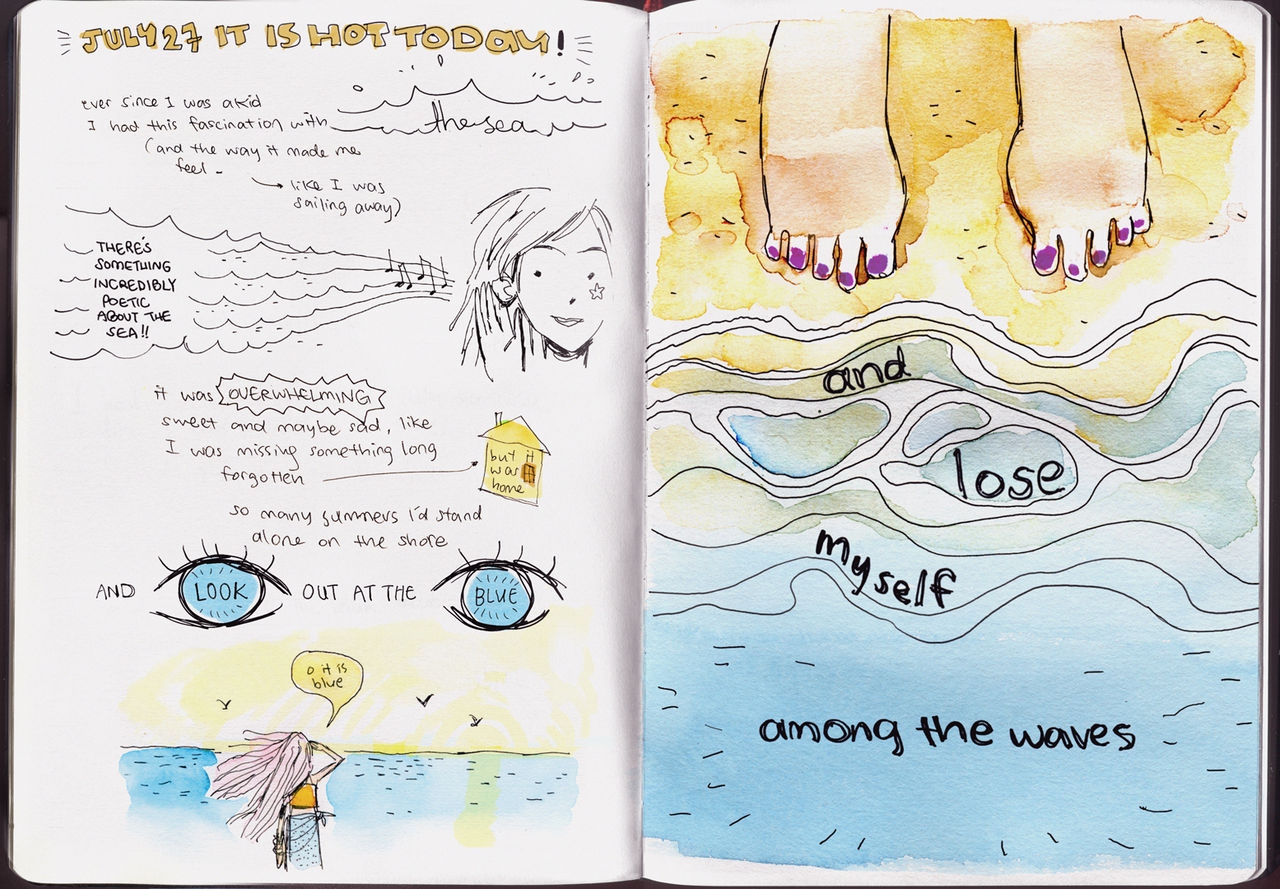 JULY 27 IT IS HOT TODAY!
ever since I was a kid
I had this fascination with the sea
(and the way it made me
feel -
like I was
sailing away)
THERE'S
SOMETHING
INCREDIBLY
POETIC
ABOUT THE
SEA!!
it was OVERWHELMING
sweet and maybe sad, like
I was missing something long
forgotten
but it
was
home
so many summers I'd stand
alone on the shore
AND LOOK OUT AT THE BLUE
o it is
blue
and
lose
myself
among the waves